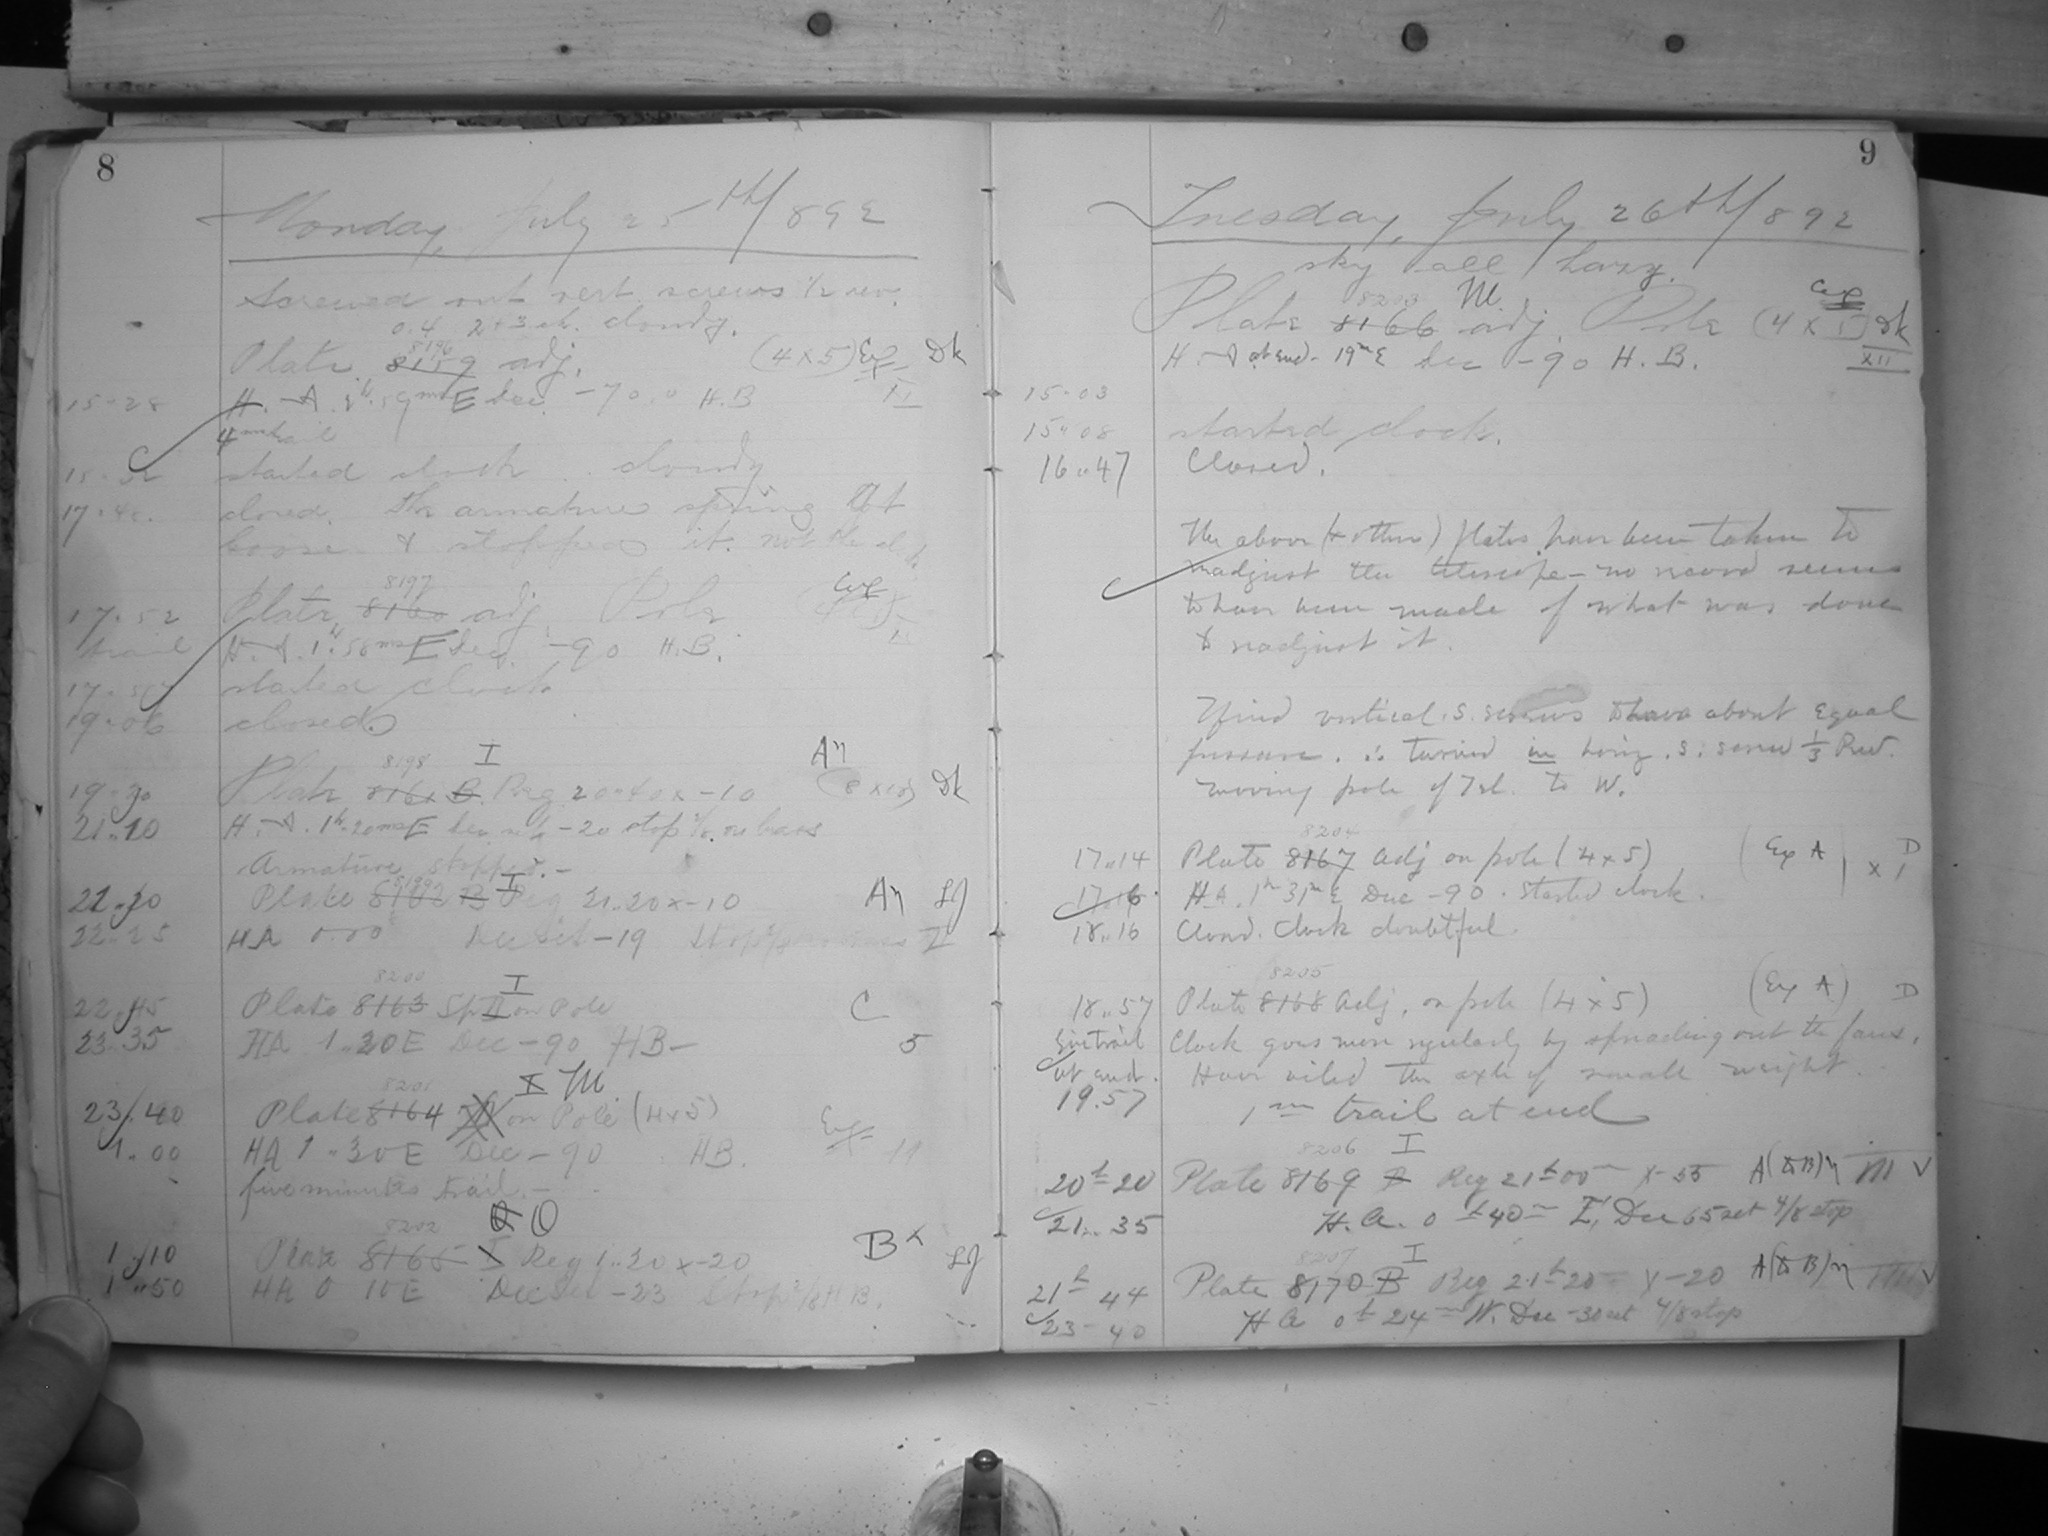 8
Monday, July 25th/892
Screwed out vert. screws 1/2 rev.
0.4 2+3 cloudy.
8196
Plate 8159 adj. (4x5) Exp Dk
15..28 H. A. 59m E Dec. -70.0 H.B XI
4m trail
15..32 started clock. cloudy
17.. closed. The armature spring got
loose & stopped it. not the
8197
17..52 Plate 8160 adj. Pole
trail H. A. 1h.56m E Dec. -90 H.B.
started clock
19..06 closed.
8198 I Aη
19..30 Plate 8161 B Reg 20..40 x -10 (8x10) Dk
21..10 H. A. 1h.20m E Dec -20 stop on brass
Armature stopped.-
8199 I
21..30 Plate 8162 B Reg 21..20 x -10 Aη LJ
22..25 HA 0.00 Dec Set -19 Stop
8200 I
22..45 Plate 8163 Sp II on Pole C
23..35 HA 1..20 E Dec -90 HB- 5
8201 I M.
23..40 Plate 8164 on Pole (4x5) Exp
1..00 HA 1..30 E Dec -90 HB. 11
five minutes trail.-
8202 O
1..10 Plate 8165 I Reg 1..30 x -20 B LJ
1..50 HA 0 10 E Dec Set -23 Stop HB.
9
Tuesday, July 26th/892
sky all hazy.
8203 M.
Plate 8166 adj. Pole (4x5) Dk
H. A at end- 19m E Dec -90 H.B. XII
15..03
15..08 started clock.
16..47 Closed.
The above (+ others) plates have been taken to
readjust the telescope - no record seems
to have been made of what was done
to readjust it.
I find vertical S. screws to have about equal
pressure. ∴ turned in horiz. S. screw 1/3 Rev.
moving pole of Tel. to W.
8204
17..14 Plate 8167 adj on pole (4x5) (Exp A) D
17..16 H.A. 1h 31m E Dec -90. Started clock. XI
18..16 Closed. Clock doubtful.
8205
18..57 Plate 8168 adj, on pole (4x5) (Exp A) D
trail Clock goes more regularly by spreading out the fans.
at end. Have oiled the axle of small weight.
19.57 1m trail at end
8206 I
20h 20 Plate 8169 Reg 21h 00m x -55 A(& B)η M ✓
21..35 H. A. 0h 40m E, Dec 65 set 4/8 stop
8207 I
21h 44 Plate 8170 B Reg 21h 20m x -20 A(& B)η M ✓
23- 40 H A 0h 24m W. Dec -30 set 4/8 stop